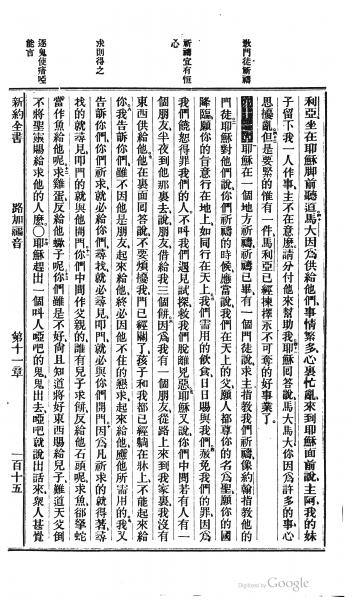 利亞坐在耶穌脚前聽道馬大因爲供給他們事情繁多心裏忙亂來到耶穌面前說主阿我的妹
子留下我一人作事主不在意麽請分付他來幫助我耶穌回答說馬大馬大你因爲許多的事心
思擾亂但是要緊的惟有一件馬利亞已經揀擇永不可奪的好事業了
耶穌在一個地方祈禱祈禱已畢有一個門徒說求主指教我們祈禱像約翰指教他的
門徒耶穌對他們說你們祈禱的時候應當說我們在天上的父願人都尊你的名爲聖願你的國
降臨願你的旨意行在地上如同行在天上我們需用的飲食日日賜與我們赦免我們的罪因爲
我們饒恕得罪我們的人不叫我們遇見試探救我們脫離兇惡耶穌又說你們中間若有人有一
個朋友半夜到他那裏去說朋友借給我三個餅因爲我有一個朋友從路上來到我家裏我沒有
東西供給他他在裏面回答說不要煩擾我門已經關了孩子和我都已經躺在牀上不能起來給
你我告訴你們雖不因他是朋友起來給他終必因他不住的懇求起來給他應他所需用的我又
告訴你們你們祈求就必給你們尋找就必尋見叩門就必與你們開門因爲凡祈求的就得著尋
找的就尋見叩門的就與他開門你們中間作父親的誰有兒子求餅反給他石頭呢求魚卻拏蛇
當作魚給他呢求雞蛋反給他蠍子呢你們雖是不好尚且知道將好東西賜給兒子難道天父倒
不將聖靈賜給求他的人麽○耶穌趕出一個叫人啞吧的鬼鬼出去啞吧就說出話來衆人甚覺
教門徒祈禱
祈禱宜有恒
心
求則得之
逐鬼使瘖啞
能言
新約全書 路加福音 第十一章 一百十五
Digitized by Google